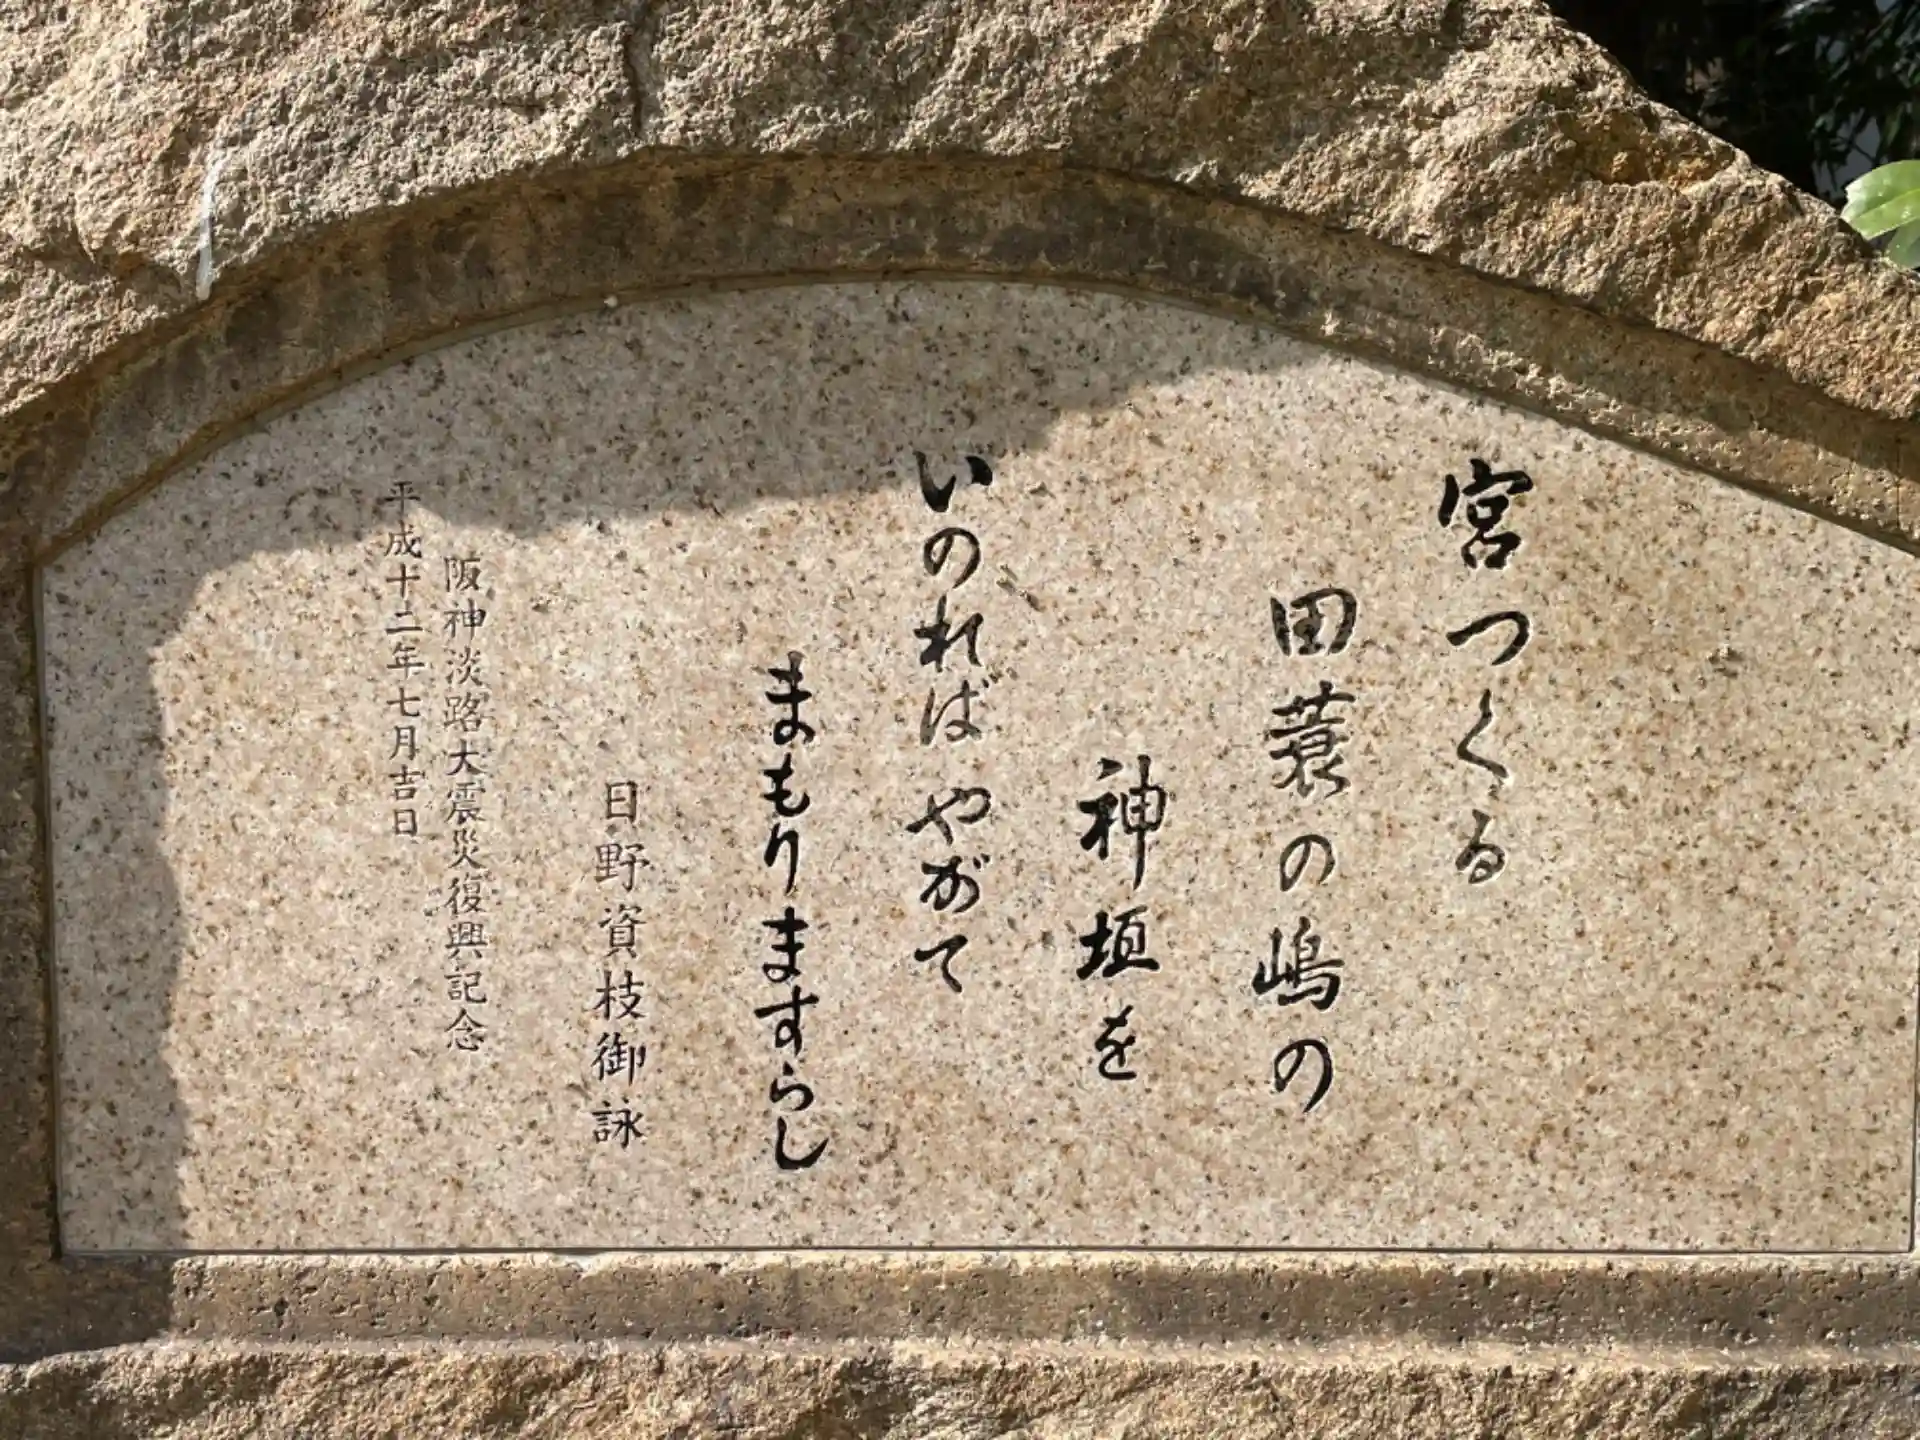 宮つくる
田蓑の嶋の
神垣を
いのればやがて
まもりますらし
日野資枝御詠
阪神淡路大震災復興記念
平成十二年七月吉日